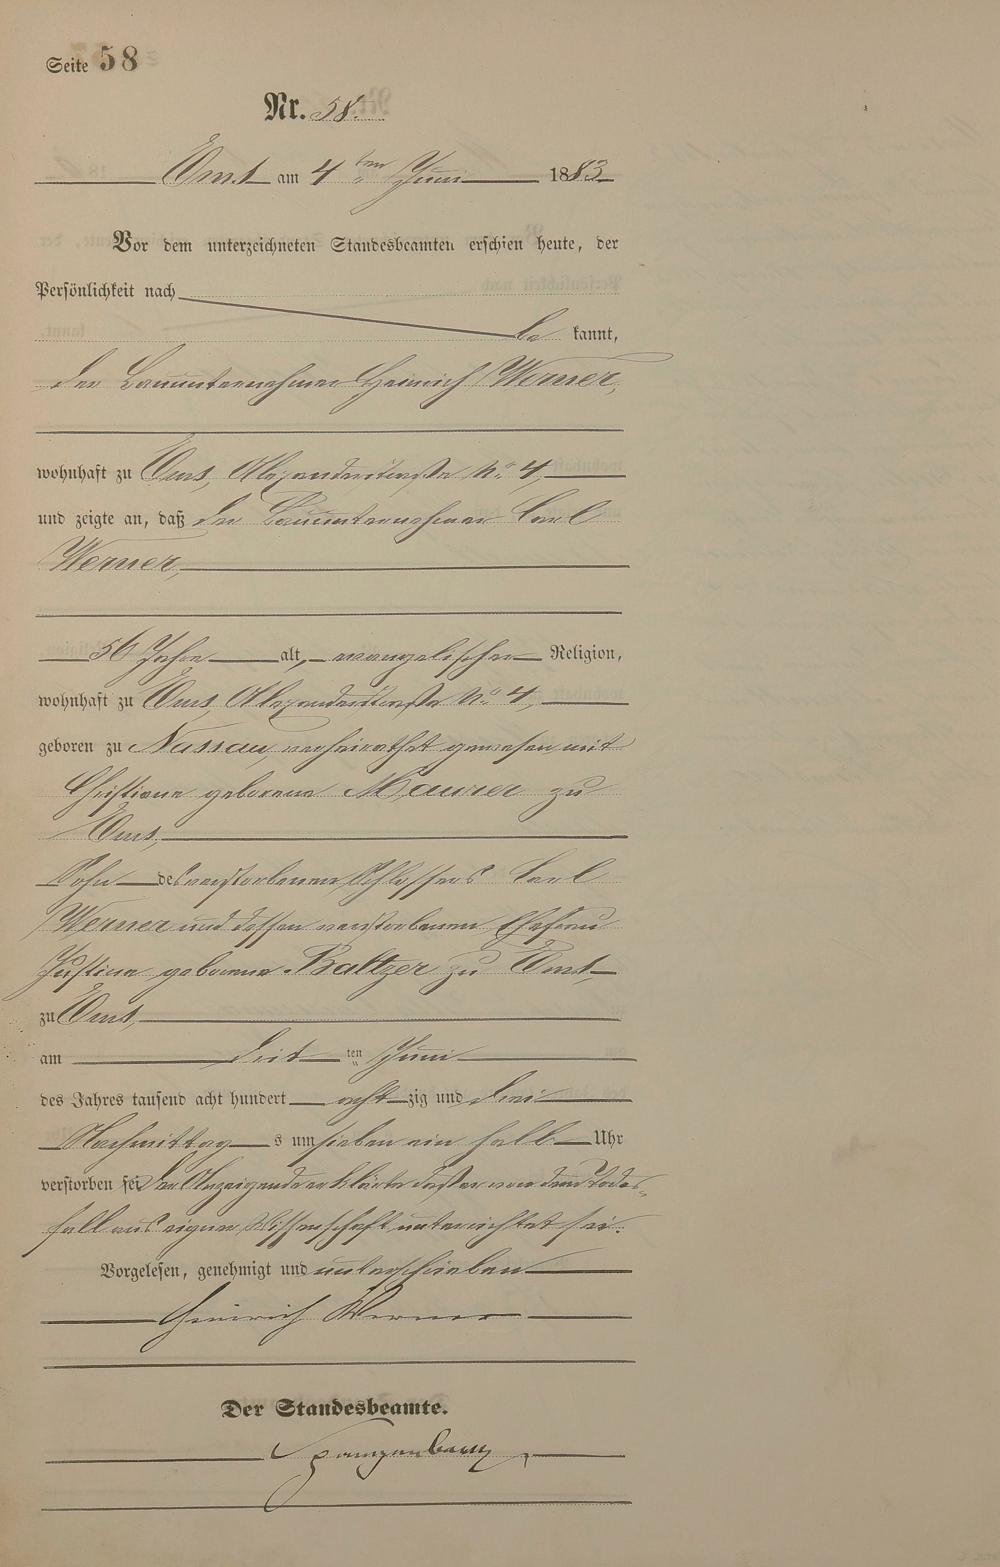 Seite 58
Nr. 58.
Ems am 4ten Juni 1883
Vor dem unterzeichneten Standesbeamten erschien heute, der
Persönlichkeit nach
be kannt,
der Bauunternehmer Heinrich Werner,
wohnhaft zu Ems, Alexanderstraße No 4,
und zeigte an, daß der Bauunternehmer Carl
Werner,
56 Jahre alt, evangelischer Religion,
wohnhaft zu Ems, Alexanderstraße No 4,
geboren zu Nassau, verheirathet gewesen mit
Christiane geborene Maurer zu
Ems,
Sohn des verstorbenen Schlossers Carl
Werner und dessen verstorbenen Ehefrau
Justine geborene Baltzer zu Ems,
zu Ems,
am drit ten Juni
des Jahres tausend acht hundert acht zig und drei
Nachmittag s um sieben ein halb Uhr
verstorben sei. Der Anzeigende erklärte daß er von dem Todes-
fall aus eigner Wissenschaft unterrichtet sei.
Vorgelesen, genehmigt und unterschrieben
Heinrich Werner
Der Standesbeamte.
Spangenberg